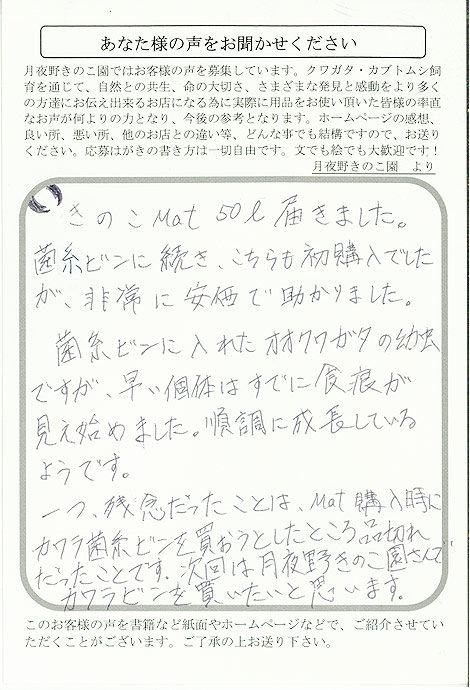 あなた様の声をお聞かせください
月夜野きのこ園ではお客様の声を募集しています。クワガタ・カブトムシ飼
育を通じて、自然との共生、命の大切さ、さまざまな発見と感動をより多く
の方達にお伝え出来るお店になる為に実際に用品をお使い頂いた皆様の率直
なお声が何よりの力となり、今後の参考となります。ホームページの感想、
良い所、悪い所、他のお店との違い等、どんな事でも結構ですので、お送り
ください。応募はがきの書き方は一切自由です。文でも絵でも大歓迎です！
月夜野きのこ園　より
きのこMat 50ℓ 届きました。
菌糸ビンに続き、こちらも初購入でした
が、非常に安価で助かりました。
菌糸ビンに入れたオオクワガタの幼虫
ですが、早い個体はすでに食痕が
見え始めました。順調に成長している
ようです。
一つ、残念だったことは、Mat購入時に
カワラ菌糸ビンを買おうとしたところ品切れ
だったことです。次回は月夜野きのこ園さんで
カワラビンを買いたいと思います。
このお客様の声を書籍など紙面やホームページなどで、ご紹介させてい
ただくことがございます。ご了承の上お送り下さい。